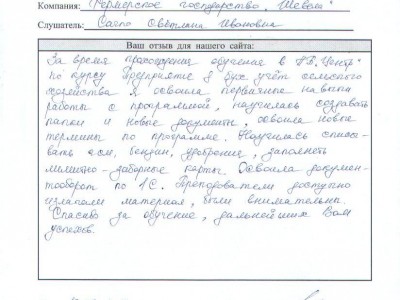 Компания: Фермерское государство "Шевом"
Слушатель: Саепо Светлана Ивановна
Ваш отзыв для нашего сайта:
За время прохождения обучения в "ПБ. Центр"
по курсу Предприятие в бух. учёт сельского
хозяйства я освоила первичные навыки
работы с программой, научилась создавать
папки и новые документы, освоила новые
термины по программе. Научилась списы-
вать осм, бензин, удобрение, заполнять
лимитно-заборные карты. Освоила докумен-
тооборот по 1С. Преподаватели доступно
излагали материал, были внимательны.
Спасибо за обучение, дальнейших Вам
успехов.